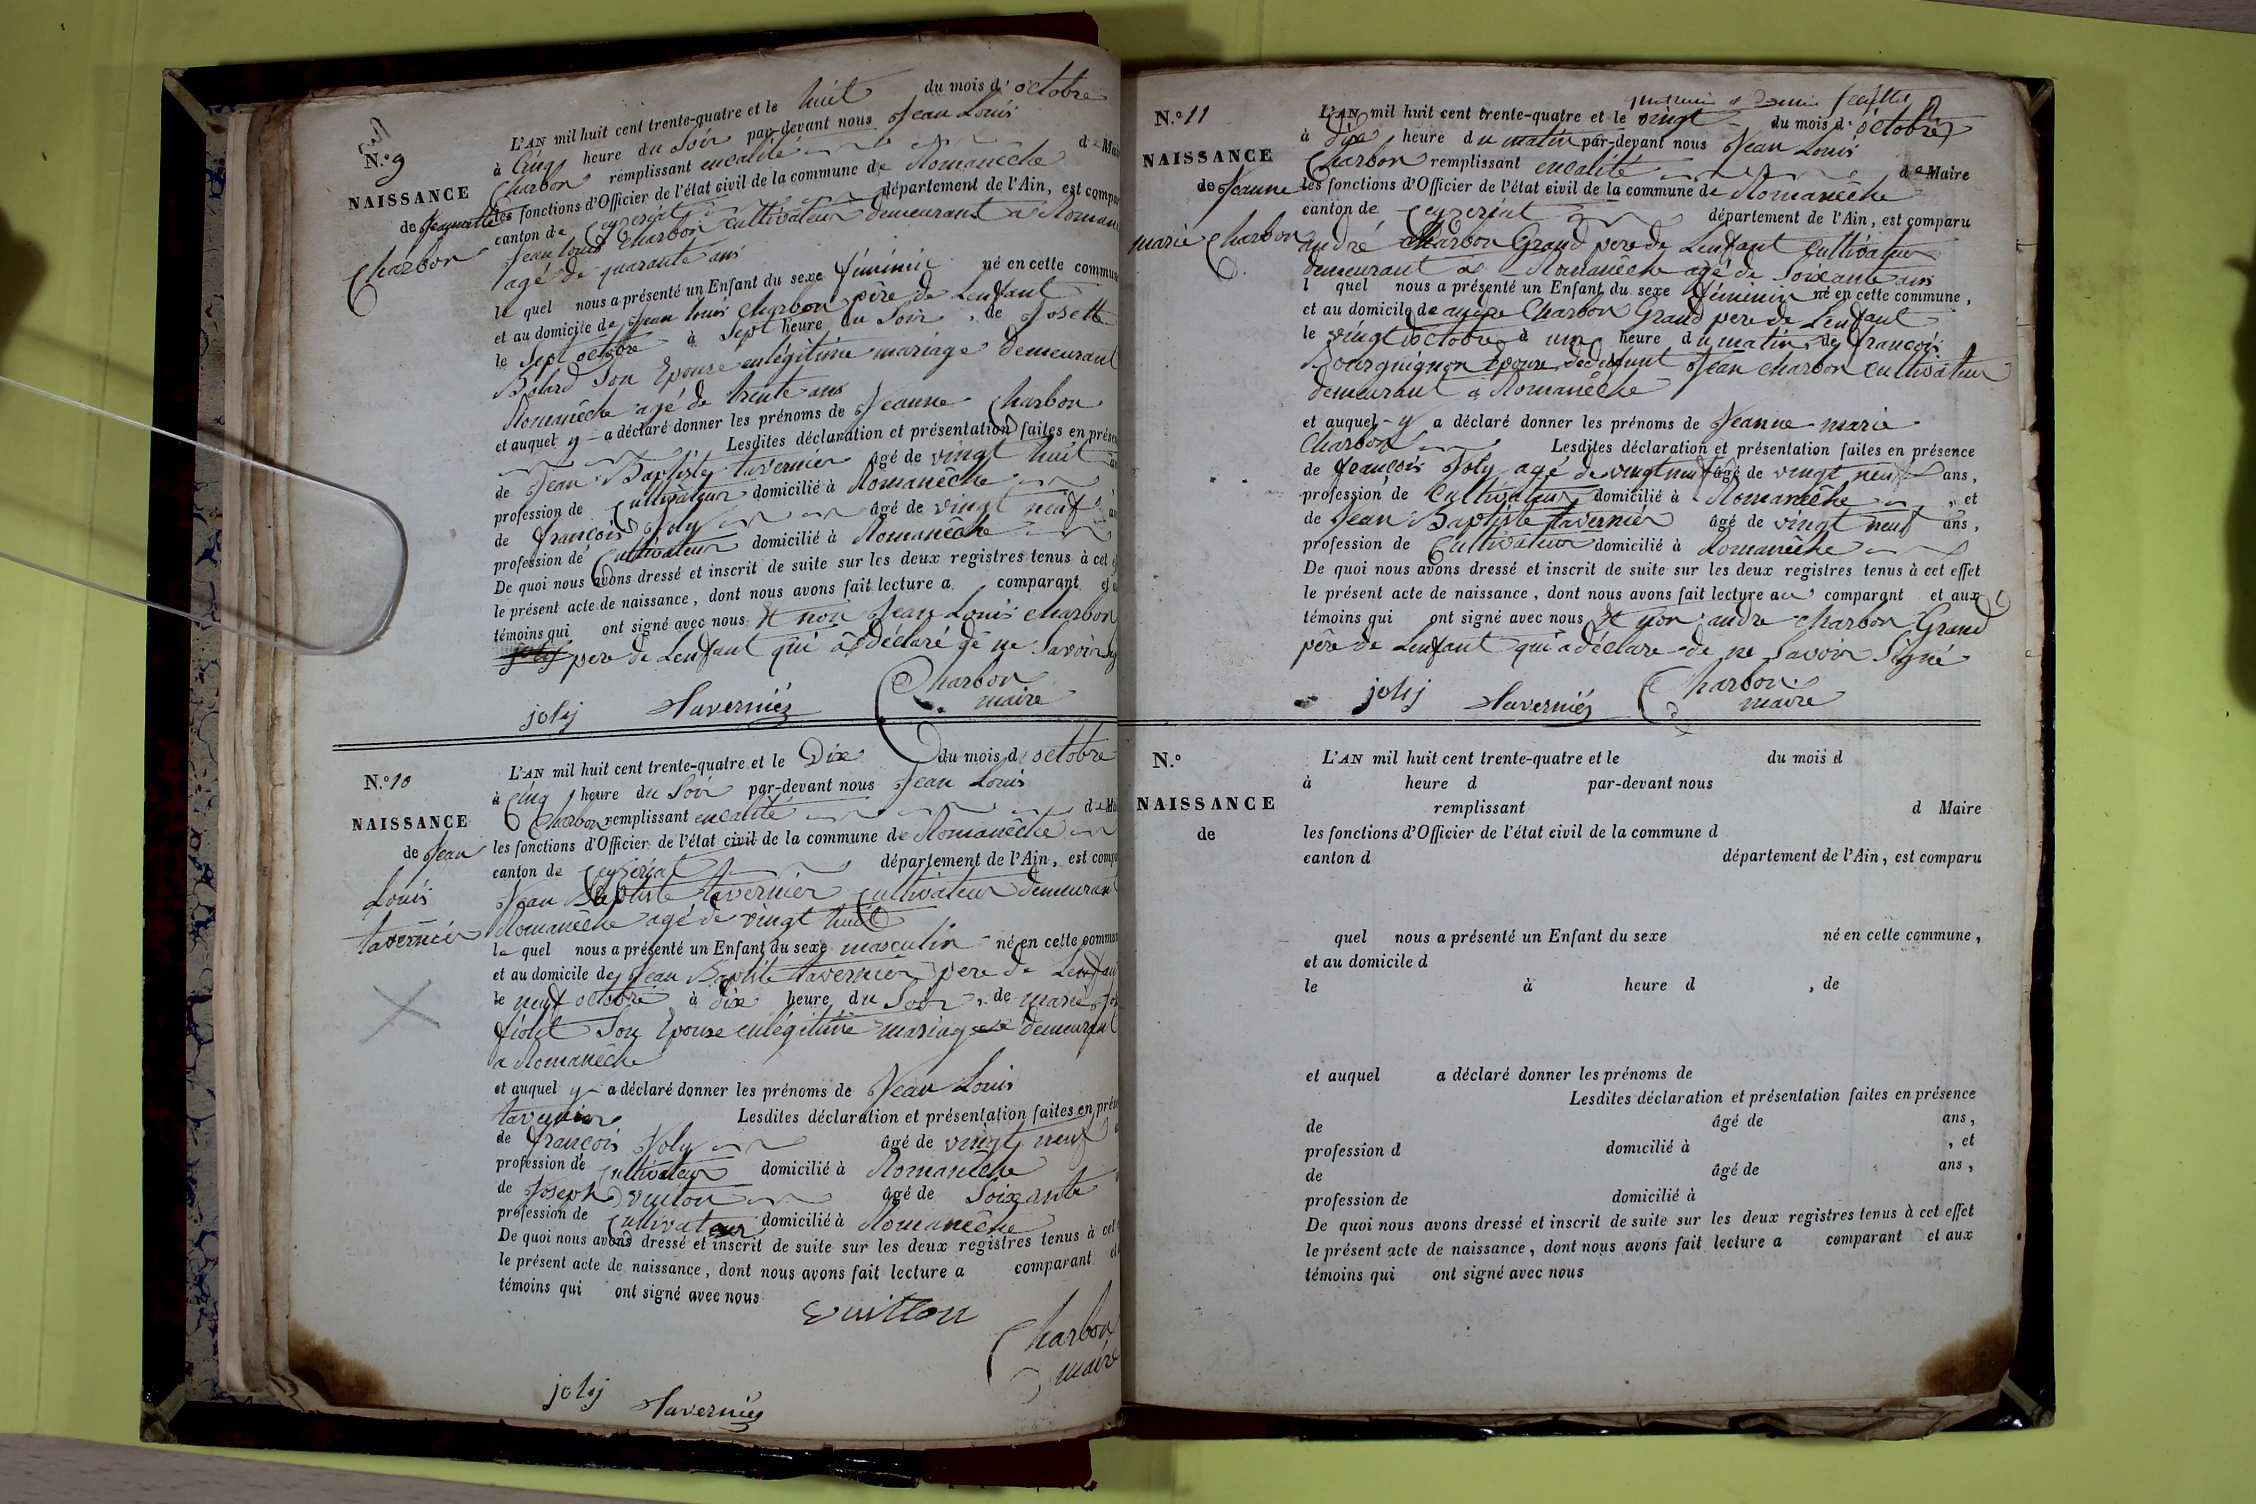 N.º 9
NAISSANCE
de Jeannette
Charbon
L'AN mil huit cent trente-quatre et le huit du mois d' octobre
à Cinq heure du Soir par-devant nous Jean Louis
Charbon remplissant enqalité de Mai
les fonctions d'Officier de l'état civil de la commune de Romanêche
canton de Ceyzeriat département de l'Ain, est compar
Jean louis Charbon cultivateur demeurant à Roman
agé de quarante ans
le quel nous a présenté un Enfant du sexe féminin né en cette commun
et au domicile de Jean louis Charbon père de Lenfant
le Sept octobre à Sept heure du Soir, de Josette
Bolard Son Epouse enlégitime mariage Demeurant
Romanêche agé de trente ans
et auquel y a déclaré donner les prénoms de Jeanne Charbon
Lesdites déclaration et présentation faites en prése
de Jean Baptiste tavernier âgé de vingt huit an
profession de Cultivateur domicilié à Romanêche
de françois Joly âgé de vingt neuf an
profession de Cultivateur domicilié à Romanêche
De quoi nous avons dressé et inscrit de suite sur les deux registres tenus à cet e
le présent acte de naissance, dont nous avons fait lecture a comparant et a
témoins qui ont signé avec nous Et non Jean Louis Charbon
joly père de Lenfant qui a déclaré de ne Savoir Sig
jolij Taverniéz Charbon
maire
N.º 10
NAISSANCE
de Jean
Louis
tavernier
L'AN mil huit cent trente-quatre et le Dix du mois d octobre
à Cinq heure du Soir par-devant nous Jean Louis
Charbon remplissant enqalité de Ma
les fonctions d'Officier de l'état civil de la commune de Romanêche
canton de Ceyzeriat département de l'Ain, est compa
Jean Baptiste tavernier Cultivateur demeurant
Romanêche agé de vingt huit
le quel nous a présenté un Enfant du sexe masculin né en cette commun
et au domicile de Jean Baptiste tavernier père de Lenfan
le neuf octobre à dix heure du Soir, de marie
fiolet Son Epouse enlégitime mariage demeurant
a Romanêche
et auquel y a déclaré donner les prénoms de Jean Louis
tavernier Lesdites déclaration et présentation faites en prése
de françois Joly âgé de vingt neuf
profession de Cultivateur domicilié à Romanêche
de Joseph vuiton âgé de Soixante
profession de Cultivateur domicilié à Romanêche
De quoi nous avons dressé et inscrit de suite sur les deux registres tenus à cet
le présent acte de naissance, dont nous avons fait lecture a comparant et
témoins qui ont signé avec nous
vuitton
Charbon
maire
jolij Taverniéz
N.º 11
NAISSANCE
de Jeanne
marie Charbon
feuillet
L'AN mil huit cent trente-quatre et le vingt du mois d' octobre
à dix heure du matin par-devant nous Jean Louis
Charbon remplissant enqalité de Maire
les fonctions d'Officier de l'état civil de la commune de Romanêche
canton de Ceyzeriat département de l'Ain, est comparu
andré Charbon Grand pere de Lenfant Cultivateur
demeurant a Romanêche agé de Soixante ans
l quel nous a présenté un Enfant du sexe féminin né en cette commune,
et au domicile de andre Charbon Grand pere de Lenfant
le vingt octobre à une heure du matin, de françoise
Bourguignon Epouse de defunt Jean charbon Cultivateur
demeurant a Romanêche
et auquel y a déclaré donner les prénoms de Jeanne marie
Charbon Lesdites déclaration et présentation faites en présence
de françois Joly agé de vingt neuf âgé de vingt neuf ans,
profession de Cultivateur domicilié à Romanêche, et
de Jean Baptiste tavernier âgé de vingt neuf ans,
profession de Cultivateur domicilié à Romanêche
De quoi nous avons dressé et inscrit de suite sur les deux registres tenus à cet effet
le présent acte de naissance, dont nous avons fait lecture au comparant et aux
témoins qui ont signé avec nous Et non andre Charbon Grand
père de Lenfant qui a déclare de ne Savoir Signé
jolij Taverniéz Charbon
maire
N.º
NAISSANCE
de
L'AN mil huit cent trente-quatre et le du mois d
à heure d par-devant nous
remplissant d Maire
les fonctions d'Officier de l'état civil de la commune d
canton d département de l'Ain, est comparu
quel nous a présenté un Enfant du sexe né en cette commune,
et au domicile d
le à heure d , de
et auquel a déclaré donner les prénoms de
Lesdites déclaration et présentation faites en présence
de âgé de ans,
profession d domicilié à , et
de âgé de ans,
profession de domicilié à
De quoi nous avons dressé et inscrit de suite sur les deux registres tenus à cet effet
le présent acte de naissance, dont nous avons fait lecture a comparant et aux
témoins qui ont signé avec nous